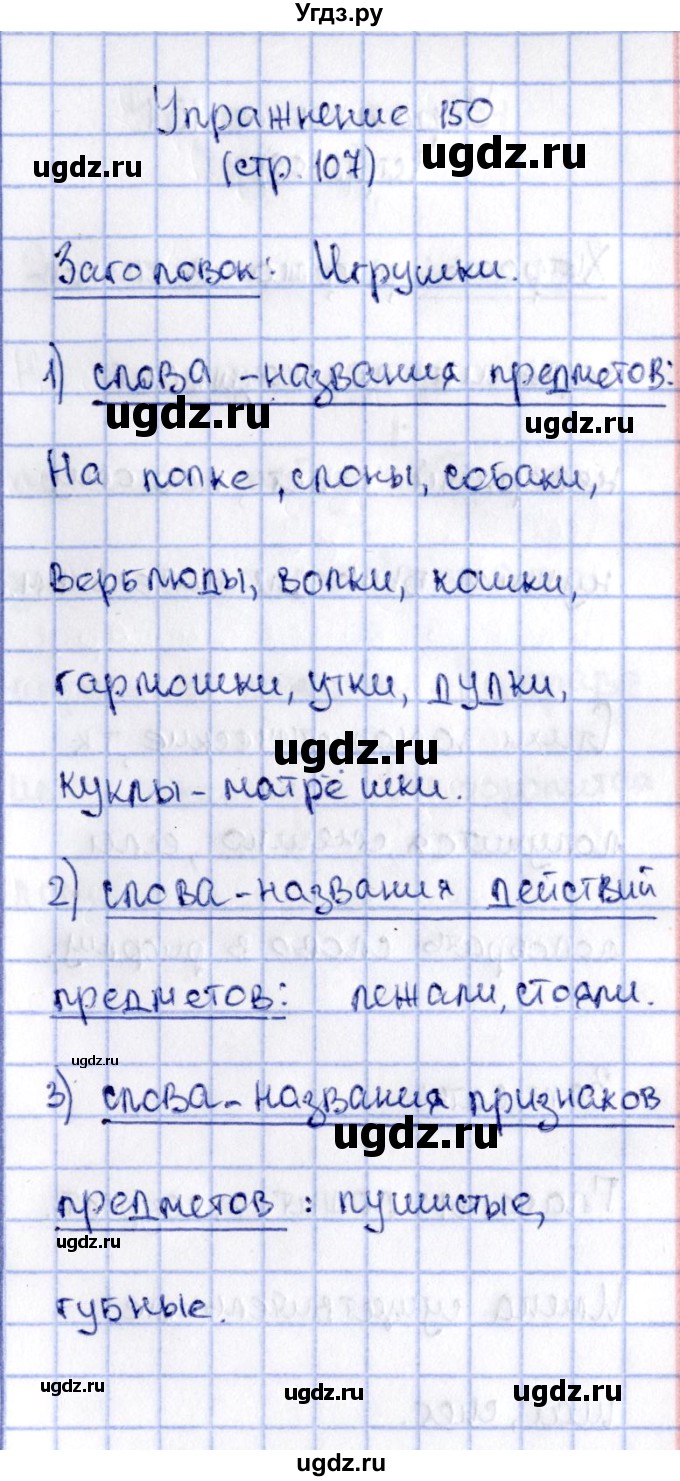 Угдз.ру
Упражнение 150
ugdz.ru (стр. 107) ugdz.ru
Заголовок: Игрушки.
1) слова-названия предметов:
ugdz.ru ugdz.ru
На полке, слоны, собаки,
верблюды, волки, кошки,
гармошки, утки, дудки,
ugdz.ru
куклы-матрёшки.
2) слова-названия действий
ugdz.ru
предметов: лежали, стояли.
ugdz.ru
3) слова-названия признаков
ugdz.ru
предметов: пушистые,
ugdz.ru
губные.
ugdz.ru ugdz.ru ugdz.ru
ugdz.ru ugdz.ru